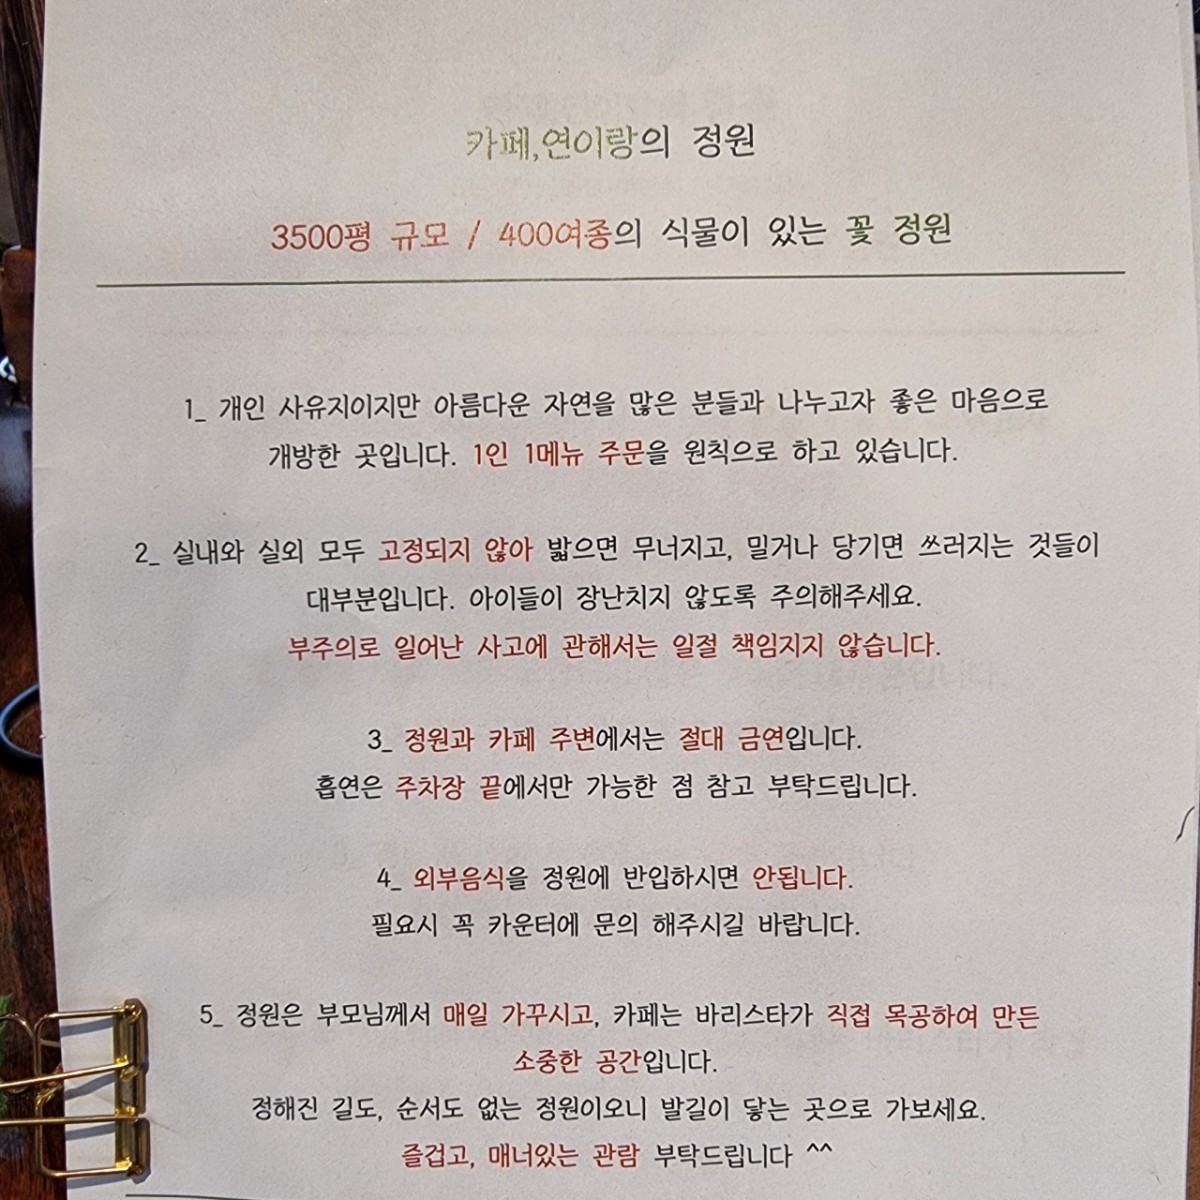 카페,연이랑의 정원
3500평 규모 / 400여종의 식물이 있는 꽃 정원
1_ 개인 사유지이지만 아름다운 자연을 많은 분들과 나누고자 좋은 마음으로
개방한 곳입니다. 1인 1메뉴 주문을 원칙으로 하고 있습니다.
2_ 실내와 실외 모두 고정되지 않아 밟으면 무너지고, 밀거나 당기면 쓰러지는 것들이
대부분입니다. 아이들이 장난치지 않도록 주의해주세요.
부주의로 일어난 사고에 관해서는 일절 책임지지 않습니다.
3_ 정원과 카페 주변에서는 절대 금연입니다.
흡연은 주차장 끝에서만 가능한 점 참고 부탁드립니다.
4_ 외부음식을 정원에 반입하시면 안됩니다.
필요시 꼭 카운터에 문의 해주시길 바랍니다.
5_ 정원은 부모님께서 매일 가꾸시고, 카페는 바리스타가 직접 목공하여 만든
소중한 공간입니다.
정해진 길도, 순서도 없는 정원이오니 발길이 닿는 곳으로 가보세요.
즐겁고, 매너있는 관람 부탁드립니다 ^^